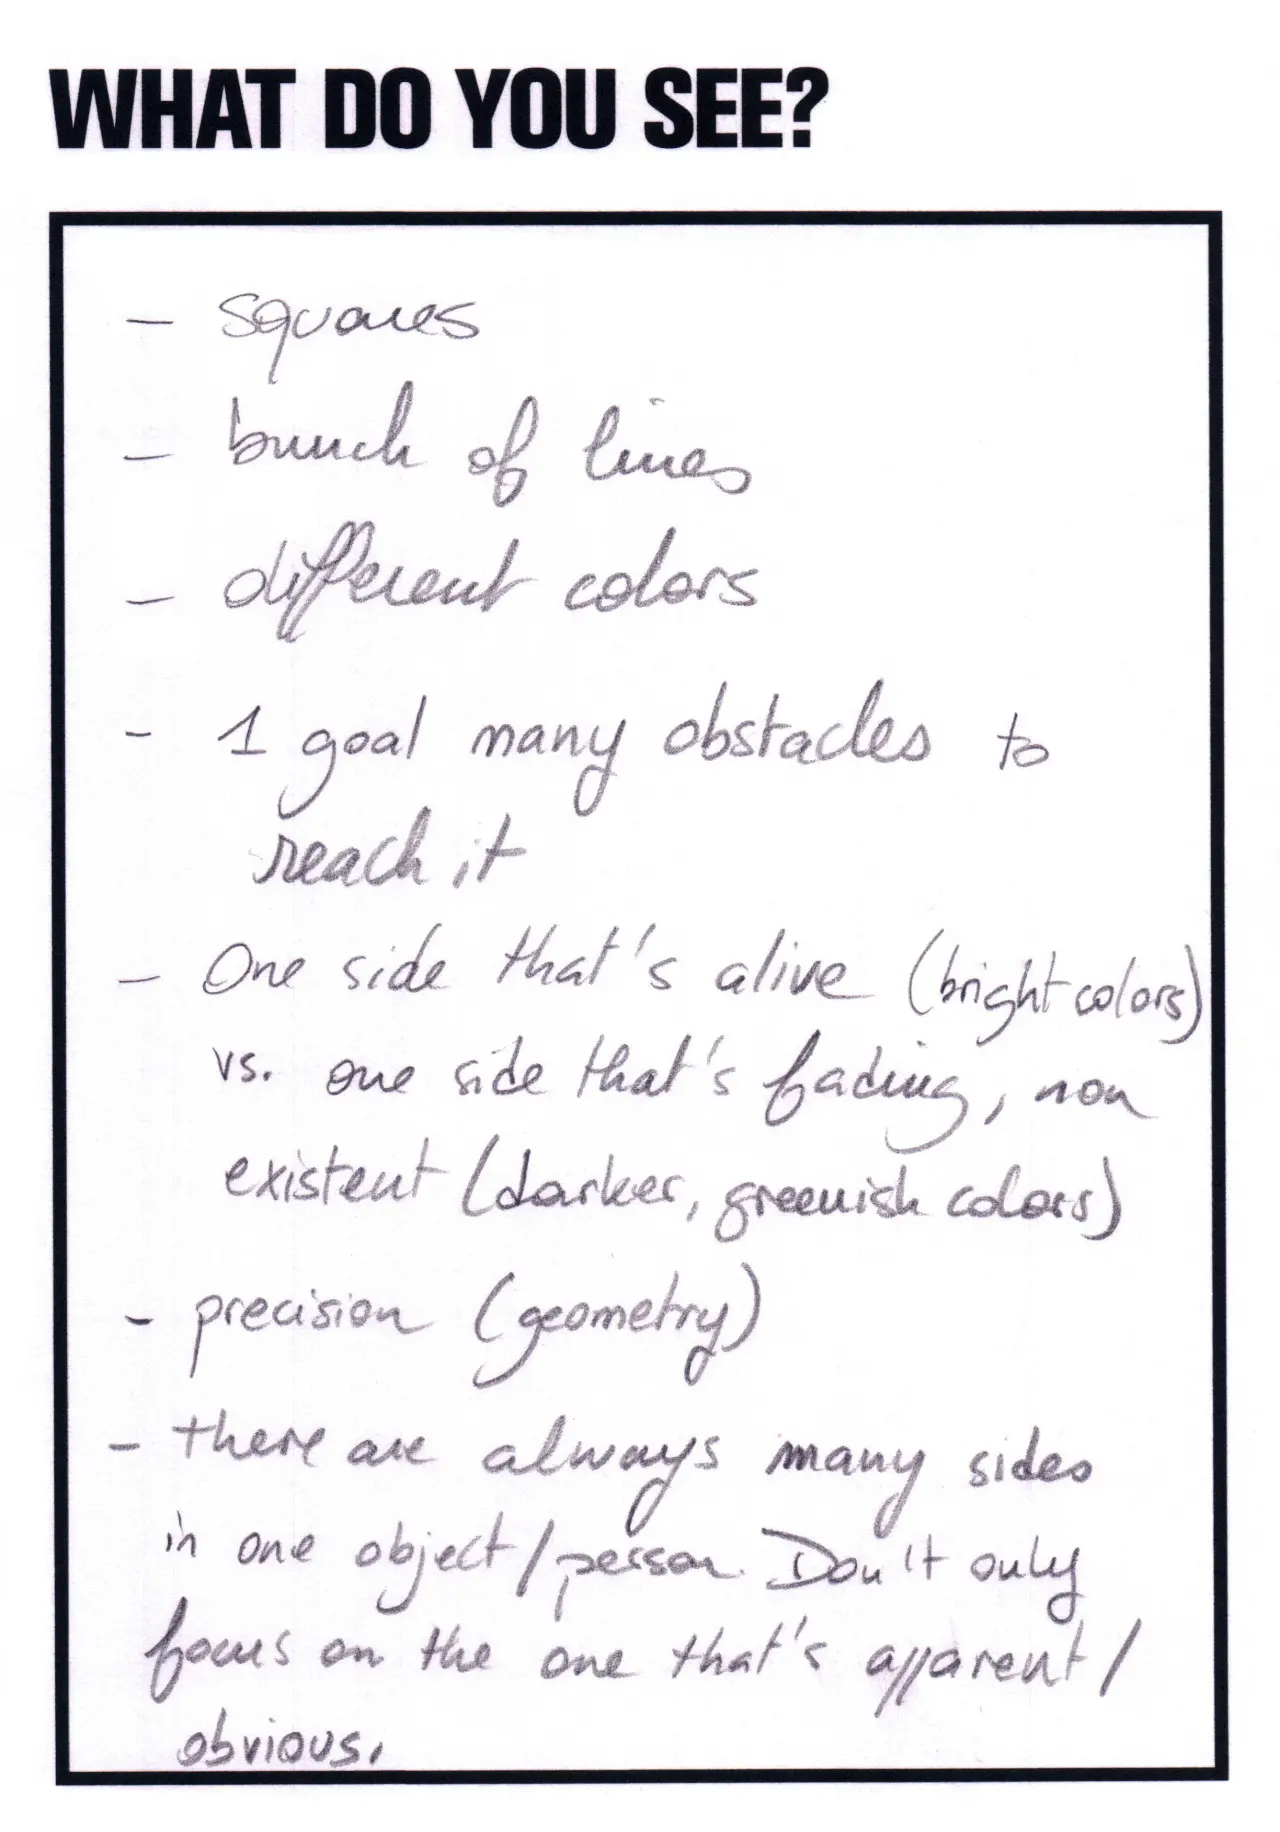 WHAT DO YOU SEE?
- squares
- bunch of lines
- different colors
- 1 goal many obstacles to
reach it
- One side that's alive (bright colors)
vs. one side that's fading, non
existent (darker, greenish colors)
- precision (geometry)
- there are always many sides
in one object/person. Don't only
focus on the one that's apparent/
obvious.